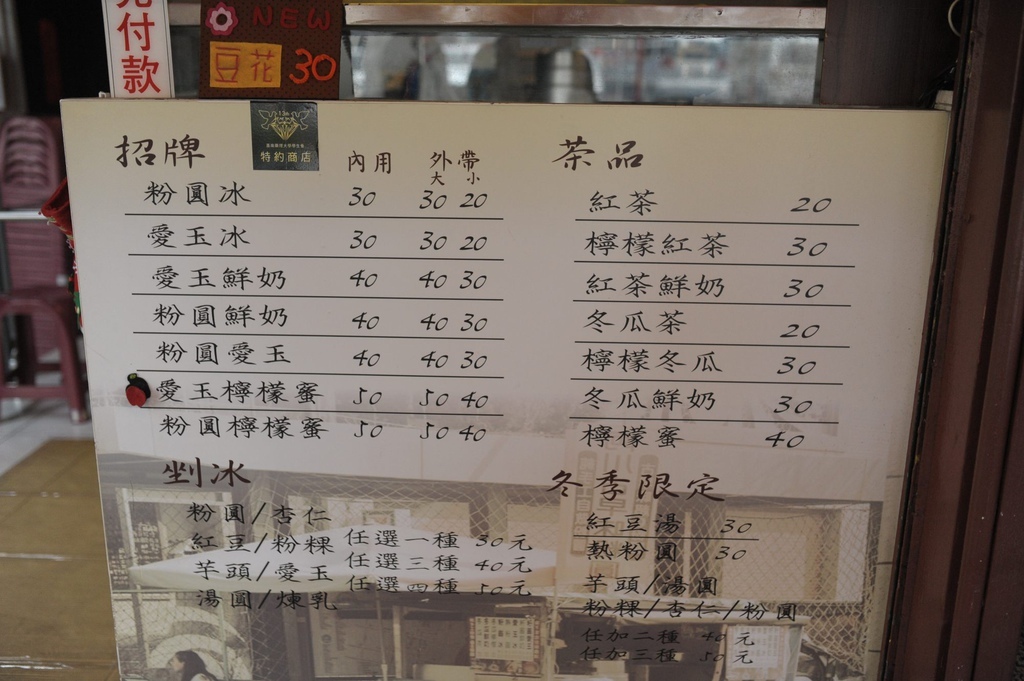 付款
NEW
豆花 30
特約商店
招牌 內用 外帶
大 小
粉圓冰 30 30 20
愛玉冰 30 30 20
愛玉鮮奶 40 40 30
粉圓鮮奶 40 40 30
粉圓愛玉 40 40 30
愛玉檸檬蜜 50 50 40
粉圓檸檬蜜 50 50 40
剉冰
粉圓/杏仁
紅豆/粉粿 任選一種 30元
芋頭/愛玉 任選三種 40元
湯圓/煉乳 任選四種 50元
茶品
紅茶 20
檸檬紅茶 30
紅茶鮮奶 30
冬瓜茶 20
檸檬冬瓜 30
冬瓜鮮奶 30
檸檬蜜 40
冬季限定
紅豆湯 30
熱粉圓 30
芋頭/湯圓
粉粿/杏仁/粉圓
任加二種 40元
任加三種 50元